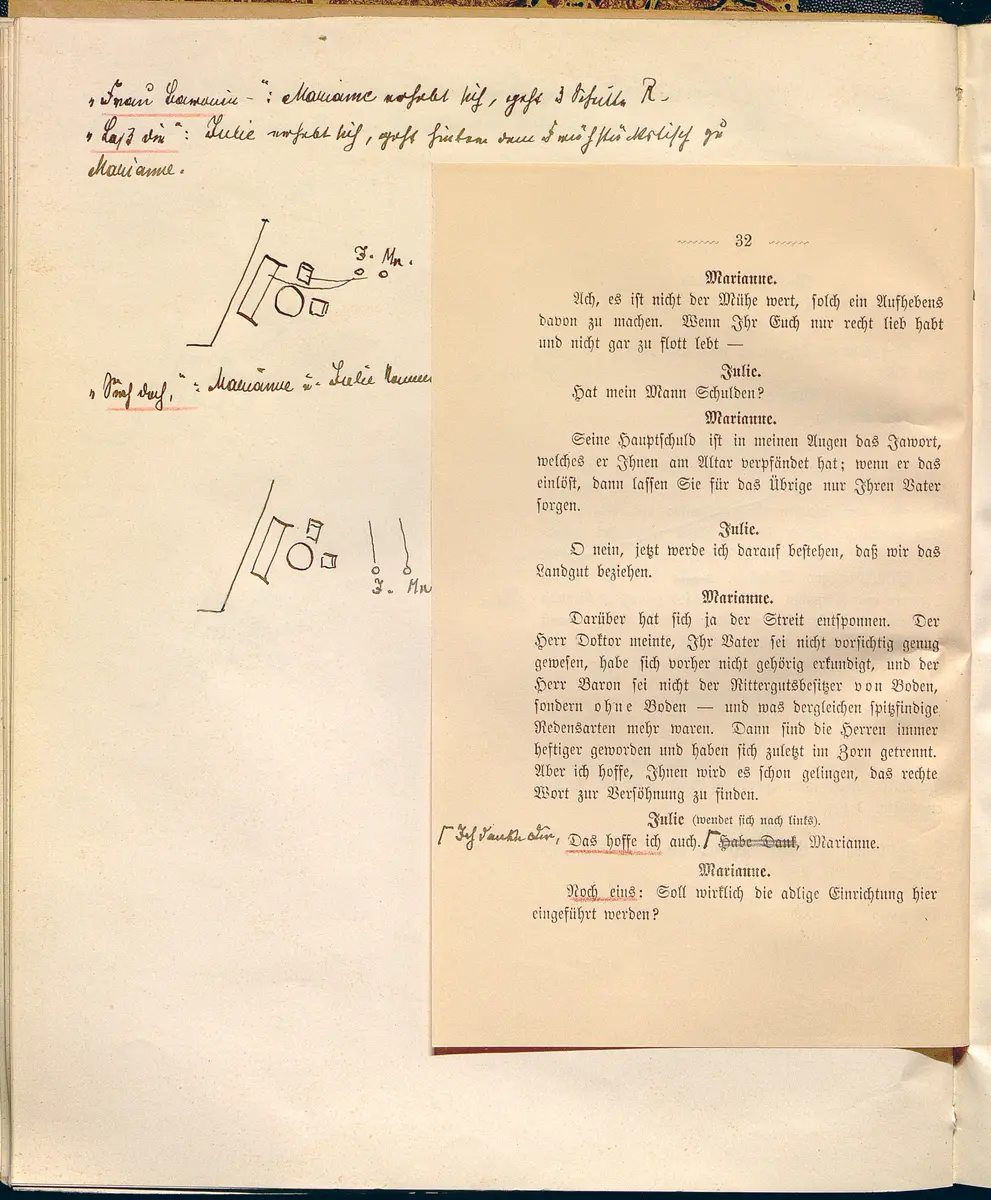 „Frau Baronin –": Marianne erhebt sich, geht 3 Schritte R.
„Laß die": Julie erhebt sich, geht hinter dem Frühstückstisch zu
Marianne.
J. Mn.
doch,": Marianne u. Julie kommen
J. Mn
32
Marianne.
Ach, es ist nicht der Mühe wert, solch ein Aufhebens
davon zu machen. Wenn Ihr Euch nur recht lieb habt
und nicht gar zu flott lebt —
Julie.
Hat mein Mann Schulden?
Marianne.
Seine Hauptschuld ist in meinen Augen das Jawort,
welches er Ihnen am Altar verpfändet hat; wenn er das
einlöst, dann lassen Sie für das Übrige nur Ihren Vater
sorgen.
Julie.
O nein, jetzt werde ich darauf bestehen, daß wir das
Landgut beziehen.
Marianne.
Darüber hat sich ja der Streit entsponnen. Der
Herr Doktor meinte, Ihr Vater sei nicht vorsichtig genug
gewesen, habe sich vorher nicht gehörig erkundigt, und der
Herr Baron sei nicht der Rittergutsbesitzer von Boden,
sondern ohne Boden — und was dergleichen spitzfindige
Redensarten mehr waren. Dann sind die Herren immer
heftiger geworden und haben sich zuletzt im Zorn getrennt.
Aber ich hoffe, Ihnen wird es schon gelingen, das rechte
Wort zur Versöhnung zu finden.
Julie (wendet sich nach links).
Ich danke Dir, Das hoffe ich auch. Habe Dank, Marianne.
Marianne.
Noch eins: Soll wirklich die adlige Einrichtung hier
eingeführt werden?